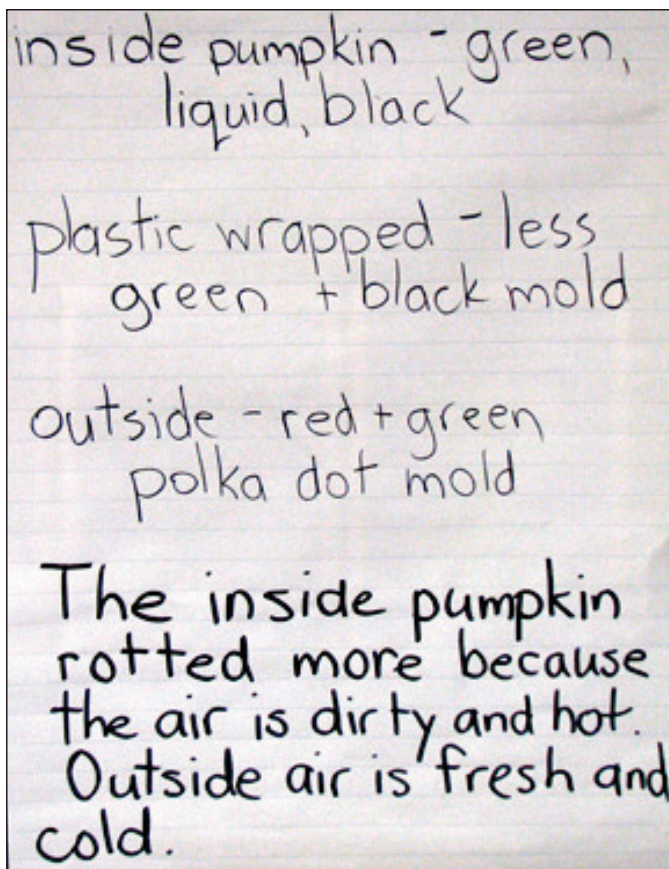 inside pumpkin - green,
liquid, black
plastic wrapped - less
green + black mold
outside - red + green
polka dot mold
The inside pumpkin
rotted more because
the air is dirty and hot.
Outside air is fresh and
cold.